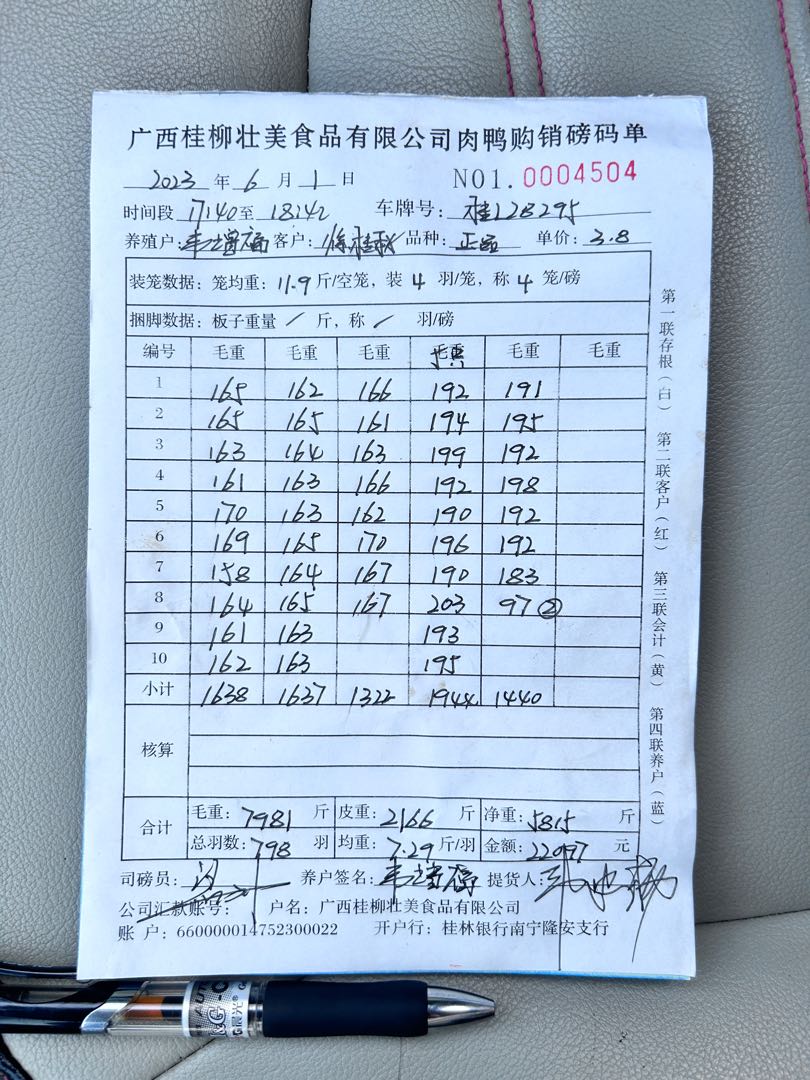 广西桂柳壮美食品有限公司肉鸭购销磅码单
2023 年 6 月 1 日 NO1.0004504
时间段 17:40 至 18:42 车牌号: 桂L28295
养殖户: 韦增福 客户: 徐桂秋 品种: 正品 单价: 3.8
装笼数据: 笼均重: 11.9 斤/空笼, 装 4 羽/笼, 称 4 笼/磅
捆脚数据: 板子重量 / 斤, 称 / 羽/磅
编号 毛重 毛重 毛重 毛重 毛重 毛重
1 165 162 166 192 191
2 165 165 161 194 195
3 163 164 163 199 192
4 161 163 166 192 198
5 170 163 162 190 192
6 169 165 170 196 192
7 158 164 167 190 183
8 164 165 167 203 97 ②
9 161 163 193
10 162 163 195
小计 1638 1637 1322 1944 1440
核算
合计 毛重: 7981 斤 皮重: 2166 斤 净重: 5815 斤
总羽数: 798 羽 均重: 7.29 斤/羽 金额: 22097 元
司磅员: 养户签名: 韦增福 提货人:
公司汇款账号: 户名: 广西桂柳壮美食品有限公司
账 户: 660000014752300022 开户行: 桂林银行南宁隆安支行
第一联存根(白) 第二联客户(红) 第三联会计(黄) 第四联养户(蓝)